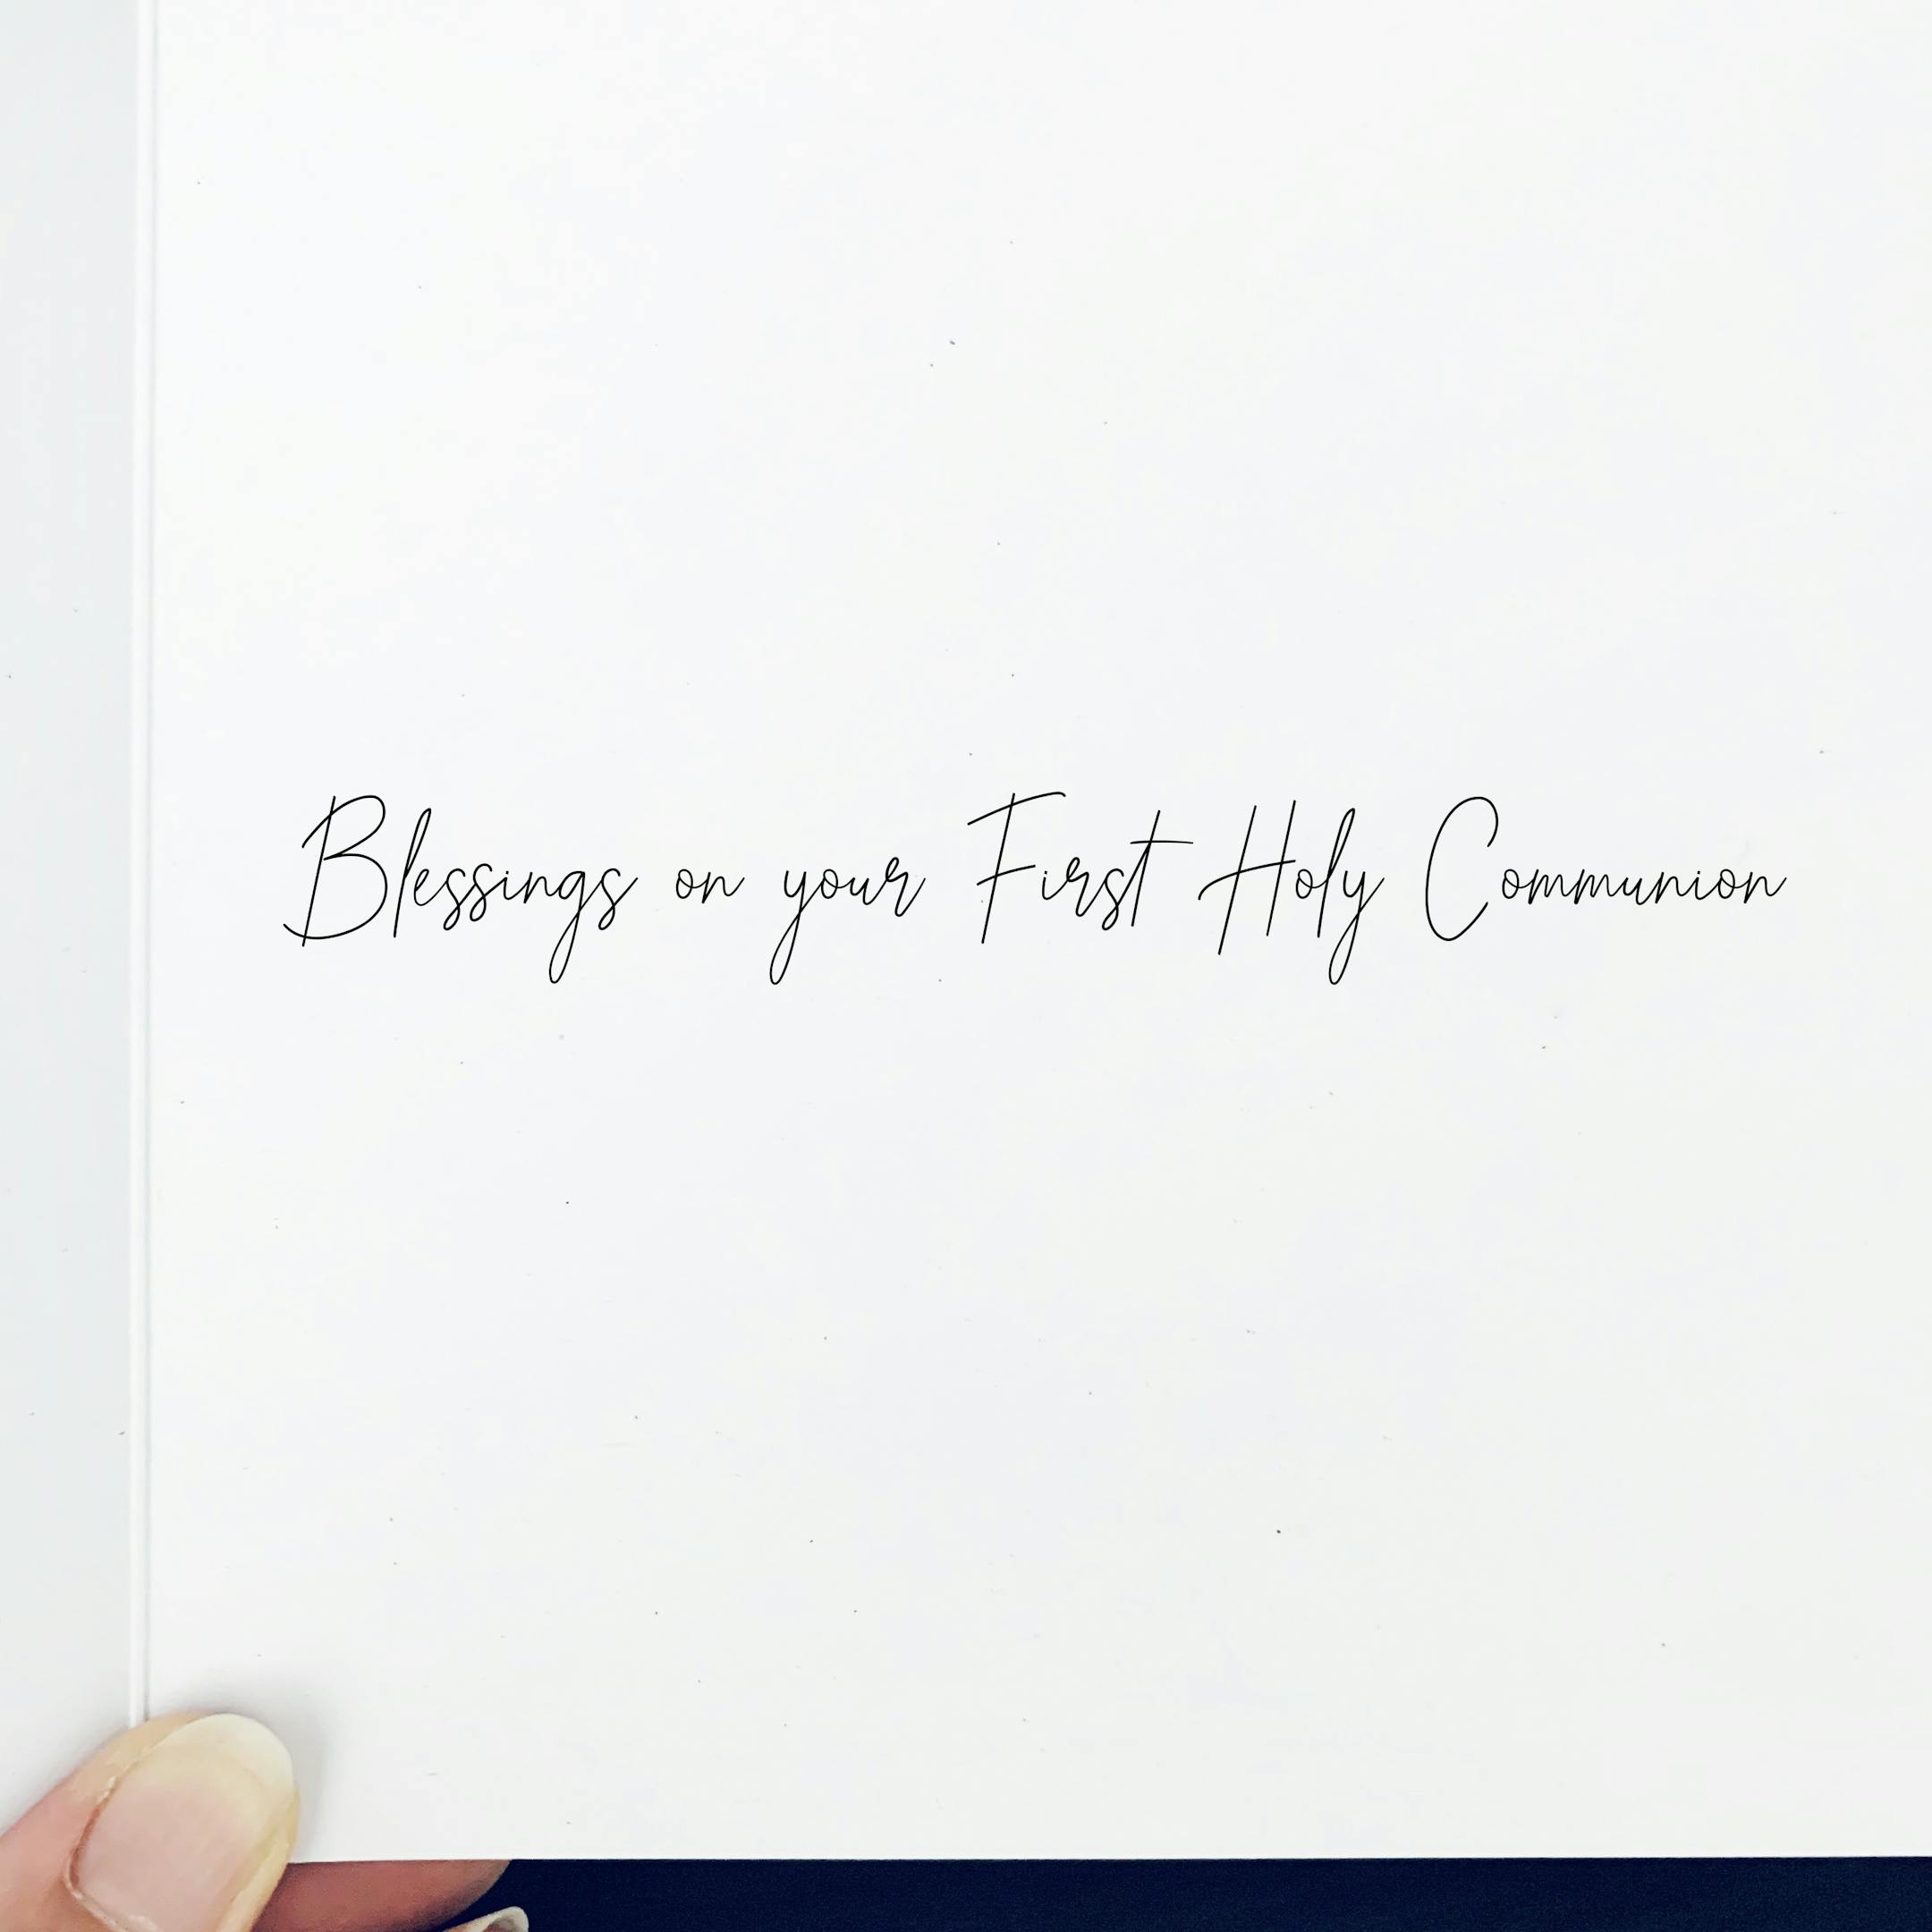 Blessings on your First Holy Communion